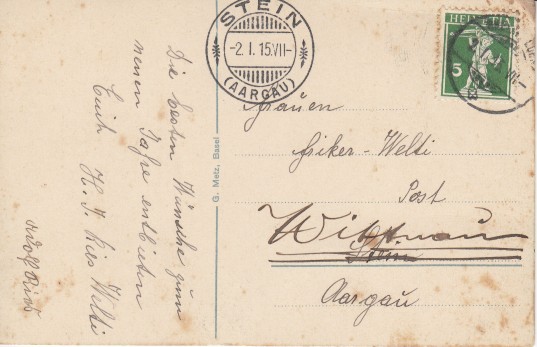 Die besten Wünsche zum
neuen Jahre entbieten
Euch H. J. Ries Welti
G. Metz, Basel
STEIN
-2.I.15.VII-
(AARGAU)
HELVETIA
5
Frauen
Friker-Welti
Post
Wittnau
Stein
Aargau